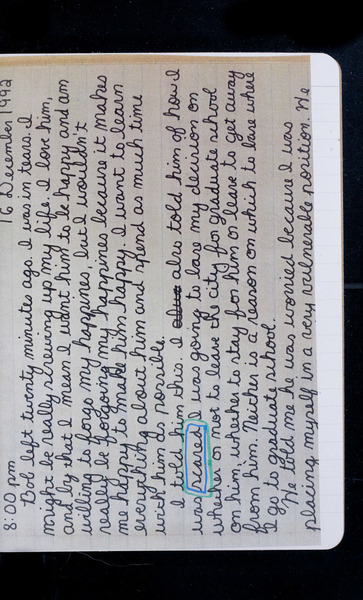 8:00 pm 16 December 1992
Bob left twenty minutes ago. I was in tears. I
might be really screwing up my life. I love him,
and by that I mean I want him to be happy and am
willing to forgo my happines, but I wouldn't
really be forgoing my happines because it makes
me happy to make him happy. I want to learn
everything about him and spend as much time
with him as possible.
I told him this. I also told him of how I
was I was going to base my decision on
whether or not to leave the city for graduate school
on him; whether to stay for him or leave to get away
from him. Neither is a reason on which to base where
I go to graduate school.
He told me he was worried because I was
placing myself in a very vulnerable position. We